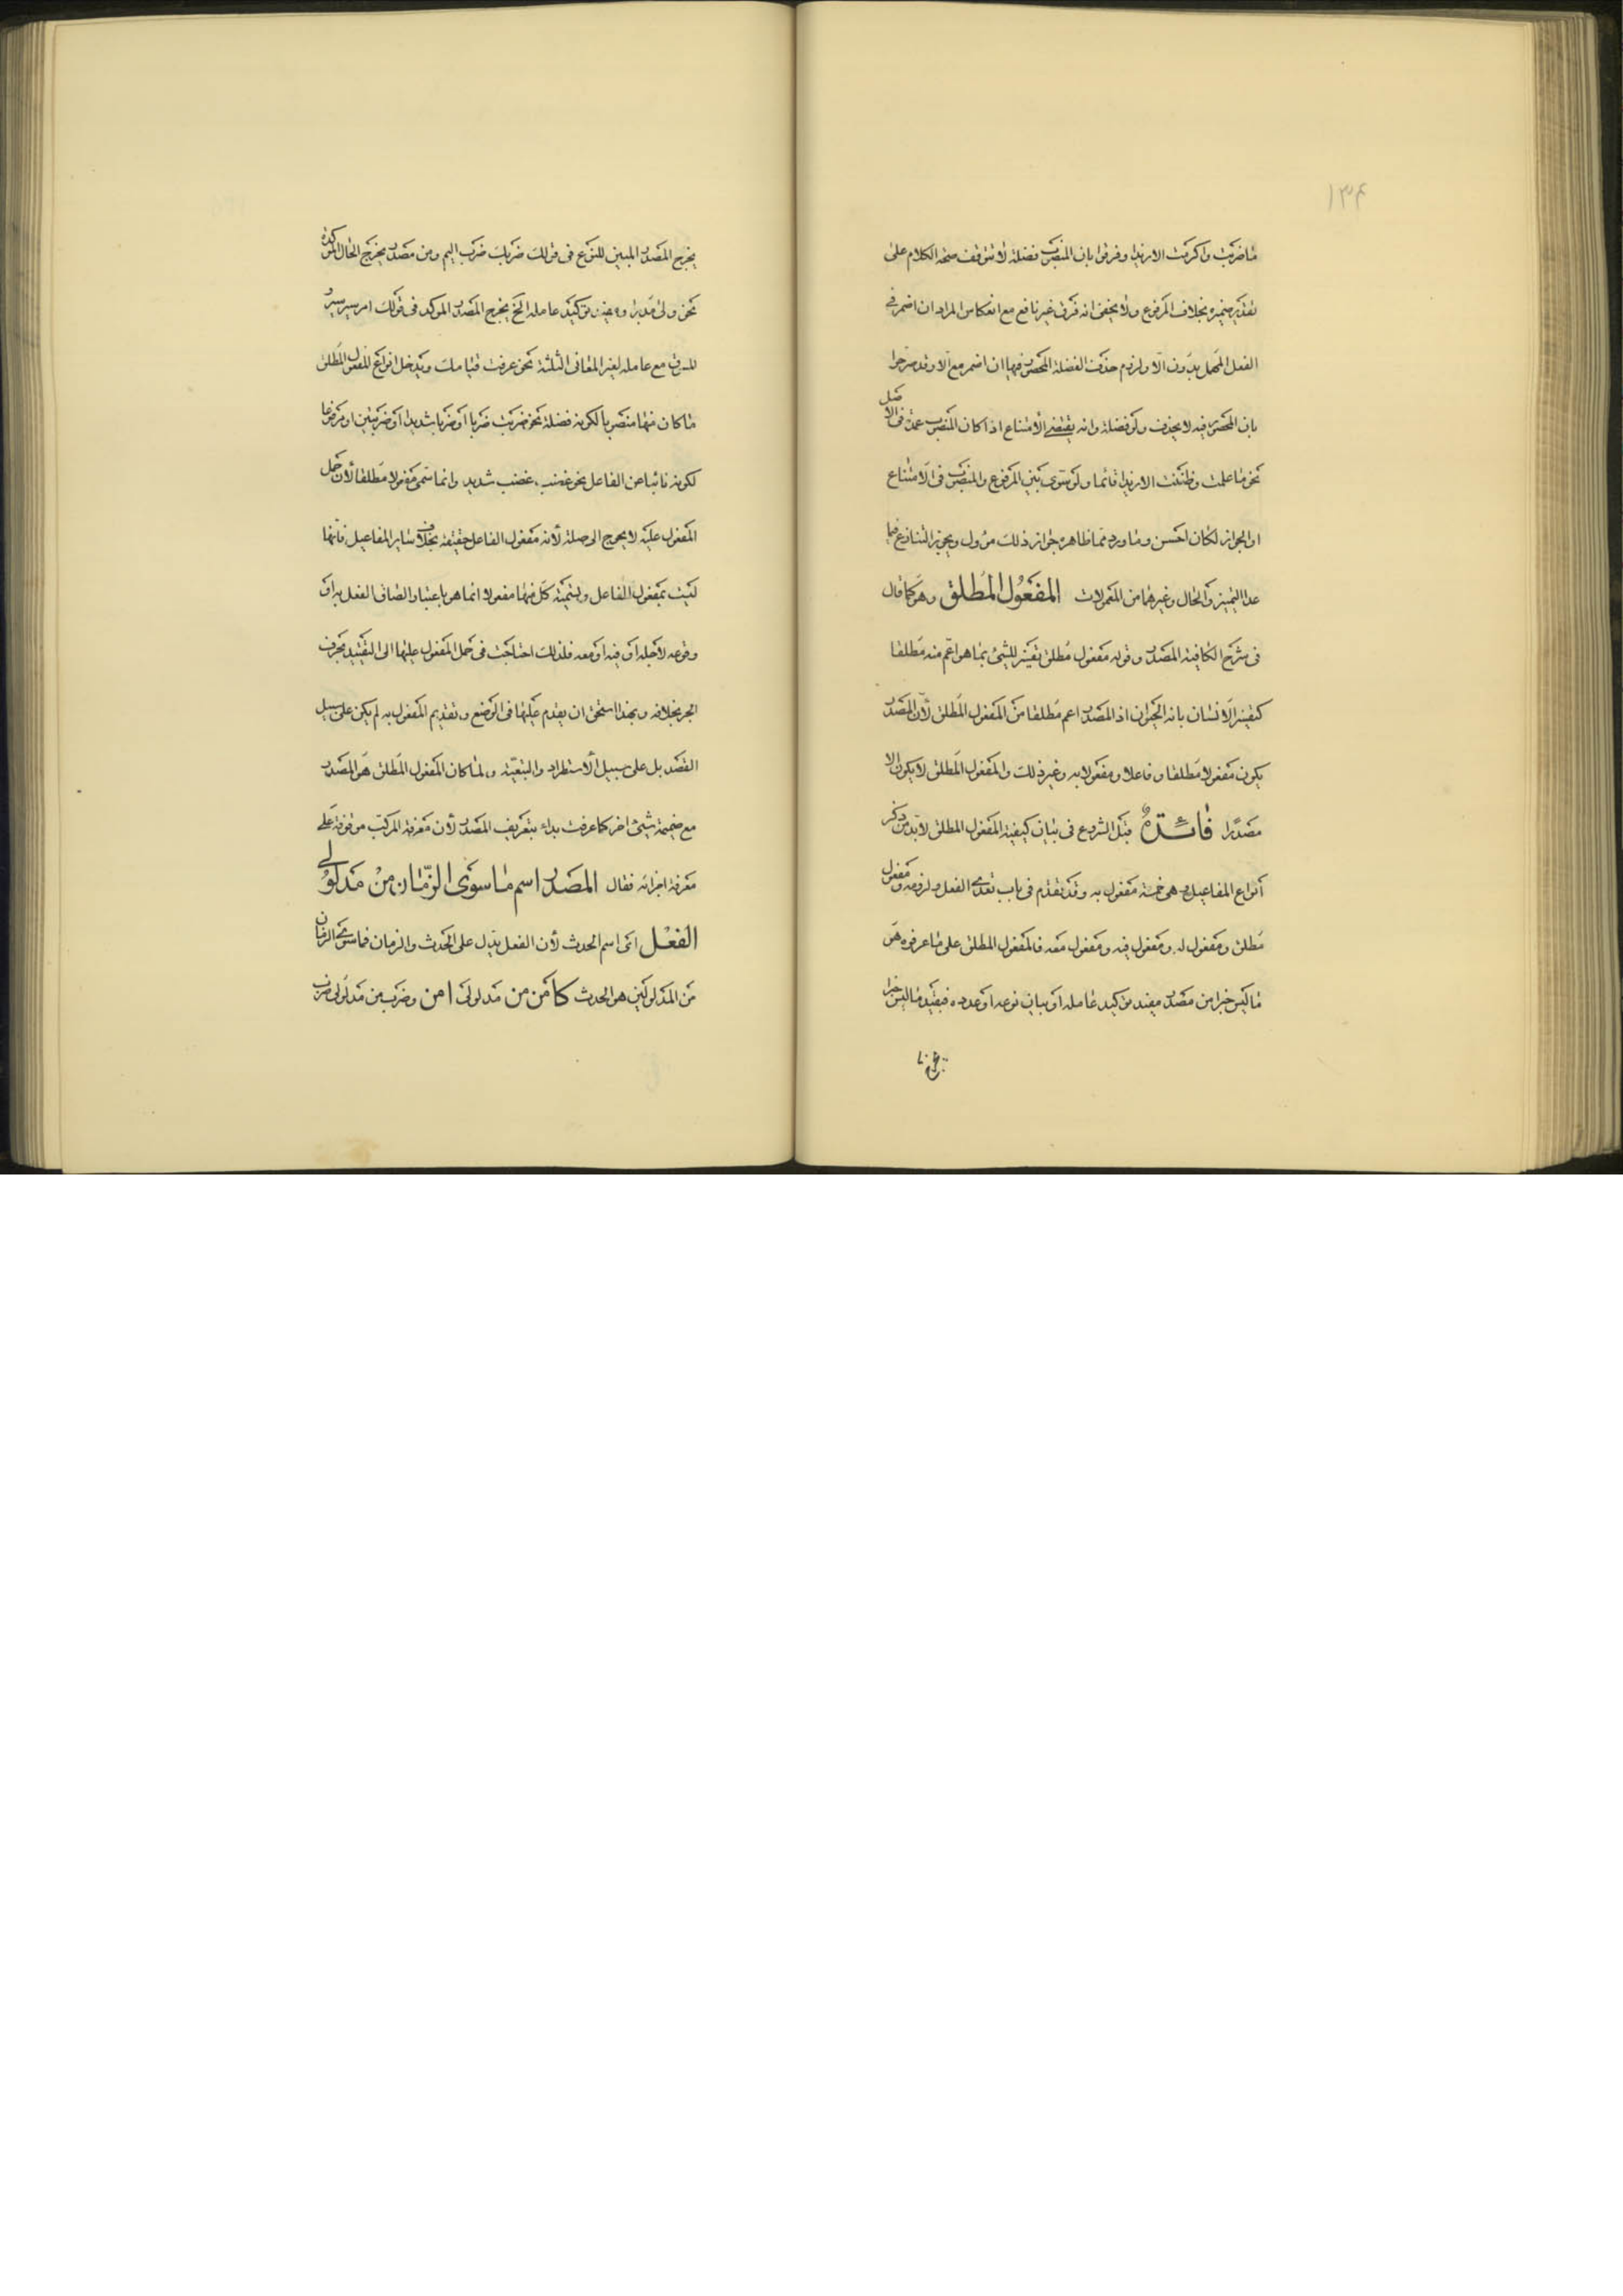 ١٣٤
ما ضربت واكرمت الا زيدا وفرقوا بان المنصوب فضلة لا تتوقف صحة الكلام على
تقدير ضميره بخلاف المرفوع ولا يخفى انه فرق غير نافع مع انعكاس المراد ان اضمر في
الفعل المهمل بدون الا ولزوم حذف الفضلة المحصور فيها ان اضمر مع الا وقد صرحوا
بان المحصور فيه لا يحذف ولو فضلة وانه يقتضى الامتناع اذا كان المنصوب عمدة فى الاصل
نحو ما علمت وظننت الا زيدا قائما ولو سوى بين المرفوع والمنصوب فى الامتناع
او الجواز لكان احسن وما ورد مما ظاهره جواز ذلك مؤول ويجوز التنازع فيما
عدا التميز والحال وغيرهما من المعمولات المفعول المطلق وهو كما قال
فى شرح الكافية المصدر وقوله مفعول مطلق تفسير للشئ بما هو اعم منه مطلقا
كتفسير الانسان بانه الحيوان اذ المصدر اعم مطلقا من المفعول المطلق لأن المصدر
يكون مفعولا مطلقا وفاعلا ومفعولا به وغير ذلك والمفعول المطلق لا يكون الا
مصدرا فائدة قبل الشروع فى بيان كيفية المفعول المطلق لا بد من ذكر
أنواع المفاعيل وهى خمسة مفعول به وقد تقدم فى باب تعدى الفعل ولزومه ومفعول
مطلق ومفعول له ومفعول فيه ومفعول معه فالمفعول المطلق على ما عرفوه هو
ما ليس خبرا من مصدر مفيد توكيد عامله او بيان نوعه او عدده فبقيد ما ليس خبرا
يخرج المصدر المبين للنوع فى قولك ضربك ضرب اليم ومن مصدر يخرج الحال المؤكدة
نحو ولى مدبرا و توكيد عامله الخ يخرج المصدر الموكد فى قولك امر سير سير
مع عامله لغير المعانى الثلثة نحو عرفت قيامك ويدخل انواع المفعول المطلق
ما كان منها منصوبا لكونه فضلة نحو ضربت ضربا او ضربا شديدا او ضربتين او مرفوعا
لكونه نائبا عن الفاعل نحو غضب غضب شديد وانما سمى مفعولا مطلقا لأن حمل
المفعول عليه لا يحوج الى صلة لأنه مفعول الفاعل حقيقة بخلاف ساير المفاعيل فانها
ليست بمفعول الفاعل وتسمية كل منها مفعولا انما هو باعتبار الصاق الفعل به او
وقوعه لأجله او فيه او معه فلذلك احتاجت فى حمل المفعول عليها الى التقييد بحرف
الجر بخلافه وبهذا استحق ان يقدم عليها فى الوضع وتقديم المفعول به لم يكن على سبيل
القصد بل على سبيل الأستطراد والتبعية ولما كان المفعول المطلق هو المصدر
مع ضميمة شيئ اخر كما عرفت بداء بتعريف المصدر لأن معرفة المركب موقوفة على
معرفة اجزائه فقال المصدر اسم ما سوى الزمان من مدلولى
الفعل اى اسم الحدث لأن الفعل يدل على الحدث والزمان فما سوى الزمان
من المدلولين هو الحدث كأمن من مدلولى امن وضرب من مدلولى ضرب